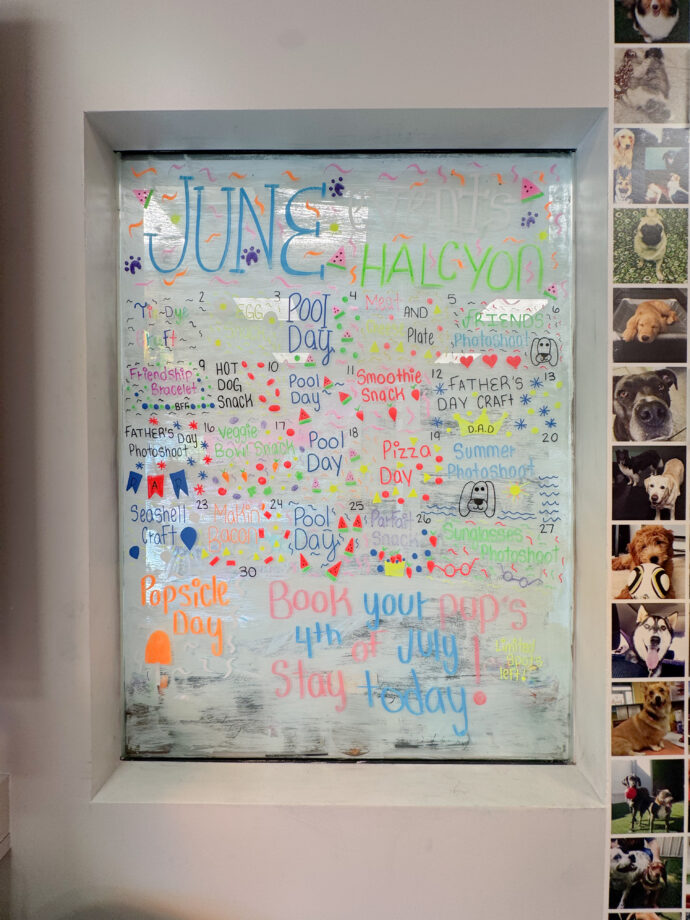 JUNE
HALCYON
2
Tie-Dye
Craft
3
EGG
4
Pool
Day
5
Meat
AND
Plate
6
FRIENDS
Photoshoot
9
Friendship
Bracelet
BFF
10
HOT
DOG
SNACK
11
Pool
Day
12
Smoothie
SNACK
13
FATHER'S
DAY CRAFT
D.A.D
16
FATHER'S Day
Photoshoot
A
17
Veggie
Bowl Snack
18
Pool
Day
19
Pizza
Day
20
Summer
Photoshoot
23
Seashell
Craft
24
Makin'
Bacon
25
Pool
Day
26
Parfait
Snack
27
Sunglasses
Photoshoot
30
Popsicle
Day
Book your pup's
4th of July
Stay today!
Limited
Spots
left!